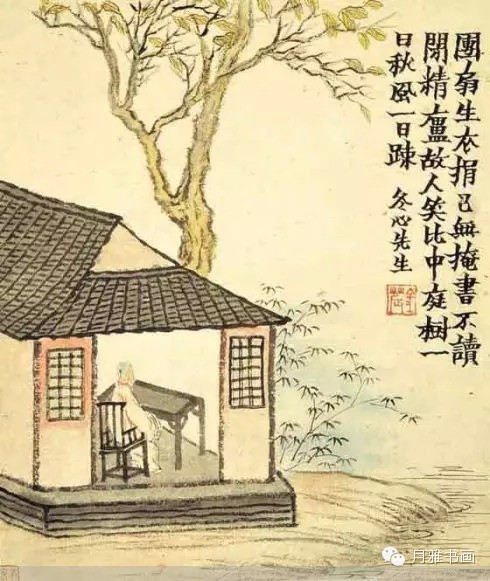 團扇生衣捐已無掩書不讀
閉精廬故人笑比中庭樹一
日秋風一日踈 冬心先生
月雅书画